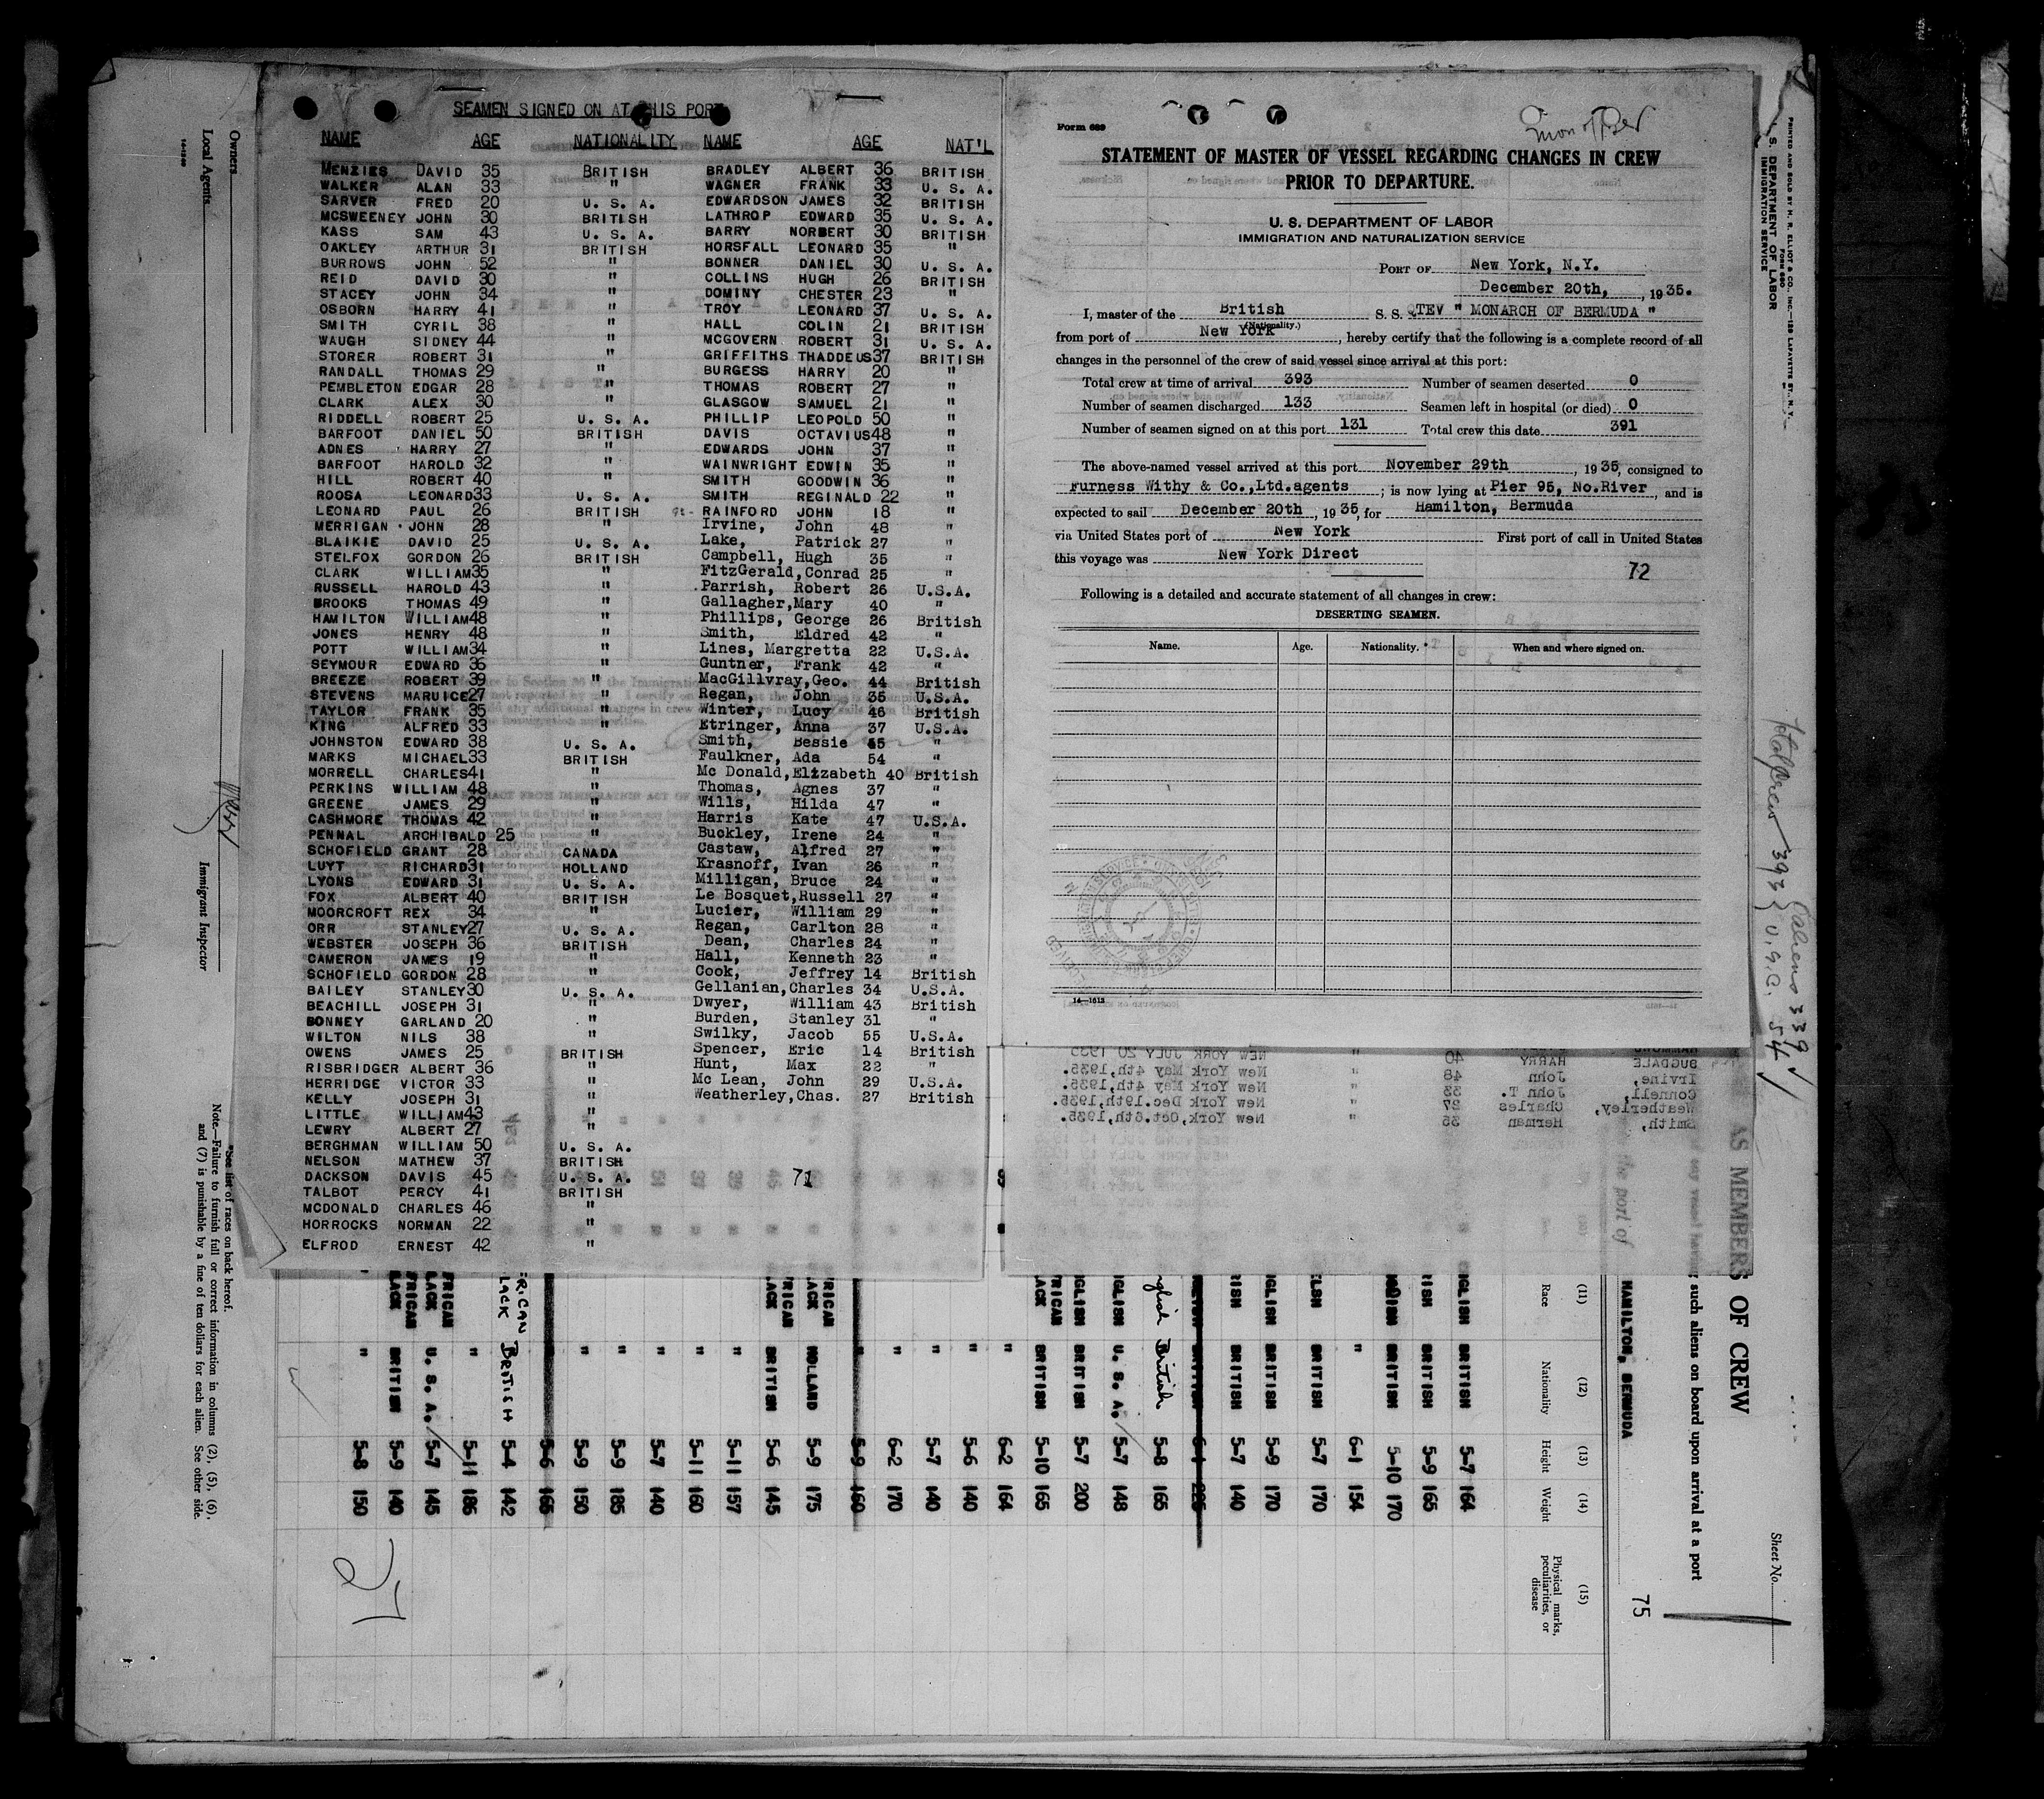 SEAMEN SIGNED ON AT THIS PORT
NAME AGE NATIONALITY
MENZIES DAVID 35 BRITISH
WALKER ALAN 33 "
SARVER FRED 20 U. S. A.
MCSWEENEY JOHN 30 BRITISH
KASS SAM 43 U. S. A.
OAKLEY ARTHUR 31 BRITISH
BURROWS JOHN 52 "
REID DAVID 30 "
STACEY JOHN 34 "
OSBORN HARRY 41 "
SMITH CYRIL 38 "
WAUGH SIDNEY 44 "
STORER ROBERT 31 "
RANDALL THOMAS 29 "
PEMBLETON EDGAR 28 "
CLARK ALEX 30 "
RIDDELL ROBERT 25 U. S. A.
BARFOOT DANIEL 50 BRITISH
ADNES HARRY 27 "
BARFOOT HAROLD 32 "
HILL ROBERT 40 "
ROOSA LEONARD 33 U. S. A.
LEONARD PAUL 26 BRITISH
MERRIGAN JOHN 28 "
BLAIKIE DAVID 25 U. S. A.
STELFOX GORDON 26 BRITISH
CLARK WILLIAM 35 "
RUSSELL HAROLD 43 "
BROOKS THOMAS 49 "
HAMILTON WILLIAM 48 "
JONES HENRY 48 "
POTT WILLIAM 34 "
SEYMOUR EDWARD 36 "
BREEZE ROBERT 39 "
STEVENS MARUICE 27 "
TAYLOR FRANK 35 "
KING ALFRED 33 "
JOHNSTON EDWARD 38 U. S. A.
MARKS MICHAEL 33 BRITISH
MORRELL CHARLES 41 "
PERKINS WILLIAM 48 "
GREENE JAMES 29 "
CASHMORE THOMAS 42 "
PENNAL ARCHIBALD 25 "
SCHOFIELD GRANT 28 CANADA
LUYT RICHARD 31 HOLLAND
LYONS EDWARD 31 U. S. A.
FOX ALBERT 40 BRITISH
MOORCROFT REX 34 "
ORR STANLEY 27 U. S. A.
WEBSTER JOSEPH 36 BRITISH
CAMERON JAMES 19 "
SCHOFIELD GORDON 28 "
BAILEY STANLEY 30 U. S. A.
BEACHILL JOSEPH 31 "
BONNEY GARLAND 20 "
WILTON NILS 38 "
OWENS JAMES 25 BRITISH
RISBRIDGER ALBERT 36 "
HERRIDGE VICTOR 33 "
KELLY JOSEPH 31 "
LITTLE WILLIAM 43 "
LEWRY ALBERT 27 "
BERGHMAN WILLIAM 50 U. S. A.
NELSON MATHEW 37 BRITISH
DACKSON DAVIS 45 U. S. A.
TALBOT PERCY 41 BRITISH
MCDONALD CHARLES 46 "
HORROCKS NORMAN 22 "
ELFROD ERNEST 42 "
NAME AGE NAT'L
BRADLEY ALBERT 36 BRITISH
WAGNER FRANK 33 U. S. A.
EDWARDSON JAMES 32 BRITISH
LATHROP EDWARD 35 U. S. A.
BARRY NORBERT 30 BRITISH
HORSFALL LEONARD 35 "
BONNER DANIEL 30 U. S. A.
COLLINS HUGH 26 BRITISH
DOMINY CHESTER 23 "
TROY LEONARD 37 U. S. A.
HALL COLIN 21 BRITISH
MCGOVERN ROBERT 31 U. S. A.
GRIFFITHS THADDEUS 37 BRITISH
BURGESS HARRY 20 "
THOMAS ROBERT 27 "
GLASGOW SAMUEL 21 "
PHILLIP LEOPOLD 50 "
DAVIS OCTAVIUS 48 "
EDWARDS JOHN 37 "
WAINWRIGHT EDWIN 35 "
SMITH GOODWIN 36 "
SMITH REGINALD 22 "
RAINFORD JOHN 18 "
Irvine, John 48 "
Lake, Patrick 27 "
Campbell, Hugh 35 "
FitzGerald, Conrad 25 "
Parrish, Robert 26 U.S.A.
Gallagher, Mary 40 "
Phillips, George 26 British
Smith, Eldred 42 "
Lines, Margretta 22 U.S.A.
Guntner, Frank 42 "
MacGillvray, Geo. 44 British
Regan, John 35 U.S.A.
Winter, Lucy 46 British
Etringer, Anna 37 U.S.A.
Smith, Bessie 55 "
Faulkner, Ada 54 "
Mc Donald, Elizabeth 40 British
Thomas, Agnes 37 "
Wills, Hilda 47 "
Harris Kate 47 U.S.A.
Buckley, Irene 24 "
Castaw, Alfred 27 "
Krasnoff, Ivan 26 "
Milligan, Bruce 24 "
Le Bosquet, Russell 27 "
Lucier, William 29 "
Regan, Carlton 28 "
Dean, Charles 24 "
Hall, Kenneth 23 "
Cook, Jeffrey 14 British
Gellanian, Charles 34 U.S.A.
Dwyer, William 43 British
Burden, Stanley 31 "
Swilky, Jacob 55 U.S.A.
Spencer, Eric 14 British
Hunt, Max 22 "
Mc Lean, John 29 U.S.A.
Weatherley, Chas. 27 British
71
Form 689
STATEMENT OF MASTER OF VESSEL REGARDING CHANGES IN CREW
PRIOR TO DEPARTURE.
U. S. DEPARTMENT OF LABOR
IMMIGRATION AND NATURALIZATION SERVICE
PORT OF New York, N.Y.
December 20th, , 1935.
I, master of the British S. S. QTEV " MONARCH OF BERMUDA "
(Nationality.)
from port of New York, hereby certify that the following is a complete record of all
changes in the personnel of the crew of said vessel since arrival at this port:
Total crew at time of arrival 393 Number of seamen deserted 0
Number of seamen discharged 133 Seamen left in hospital (or died) 0
Number of seamen signed on at this port 131 Total crew this date 391
The above-named vessel arrived at this port November 29th, 1935, consigned to
Furness Withy & Co.,Ltd.agents; is now lying at Pier 95, No.River, and is
expected to sail December 20th, 1935, for Hamilton, Bermuda
via United States port of New York First port of call in United States
this voyage was New York Direct
72
Following is a detailed and accurate statement of all changes in crew:
DESERTING SEAMEN.
Name. Age. Nationality. When and where signed on.
14—1613
HARRY 40 " NEW YORK JULY 20 1935
Irvine, John 48 New York May 4th,1935.
Connell, John T. 33 " New York May 4th,1935.
Weatherley, Charles 27 New York Dec.19th,1935.
Smith, Herman 35 " New York,Oct.6th,1935.
PRINTED AND SOLD BY H. R. ELLIOT & CO., INC.
Form 680
S. DEPARTMENT OF LABOR
IMMIGRATION SERVICE
393
Aliens 339
U.S.C. 54
Sheet No.
AS MEMBERS OF CREW
such aliens on board upon arrival at a port
the port of
HAMILTON, BERMUDA
75
(11) (12) (13) (14) (15)
Race Nationality Height Weight Physical marks, peculiarities, or disease
BRITISH 5-7 164
BRITISH 5-9 165
BRITISH 5-10 170
" 6-1 154
BRITISH 5-7 170
BRITISH 5-9 170
BRITISH 5-7 140
English British 5-8 165
U. S. A. 5-7 148
BRITISH 5-7 200
BRITISH 5-10 165
" 6-2 164
" 5-6 140
" 5-7 140
" 6-2 170
" 5-9 160
HOLLAND 5-9 175
BRITISH 5-6 145
" 5-11 157
" 5-11 160
" 5-7 140
" 5-9 185
" 5-9 150
5-6 165
BRITISH 5-4 142
" 5-11 186
U. S. A. 5-7 145
BRITISH 5-9 140
" 5-8 150
*See list of races on back hereof.
Note.—Failure to furnish full or correct information in columns (2), (5), (6),
and (7) is punishable by a fine of ten dollars for each alien. See other side.
Owners
Local Agents
Immigrant Inspector